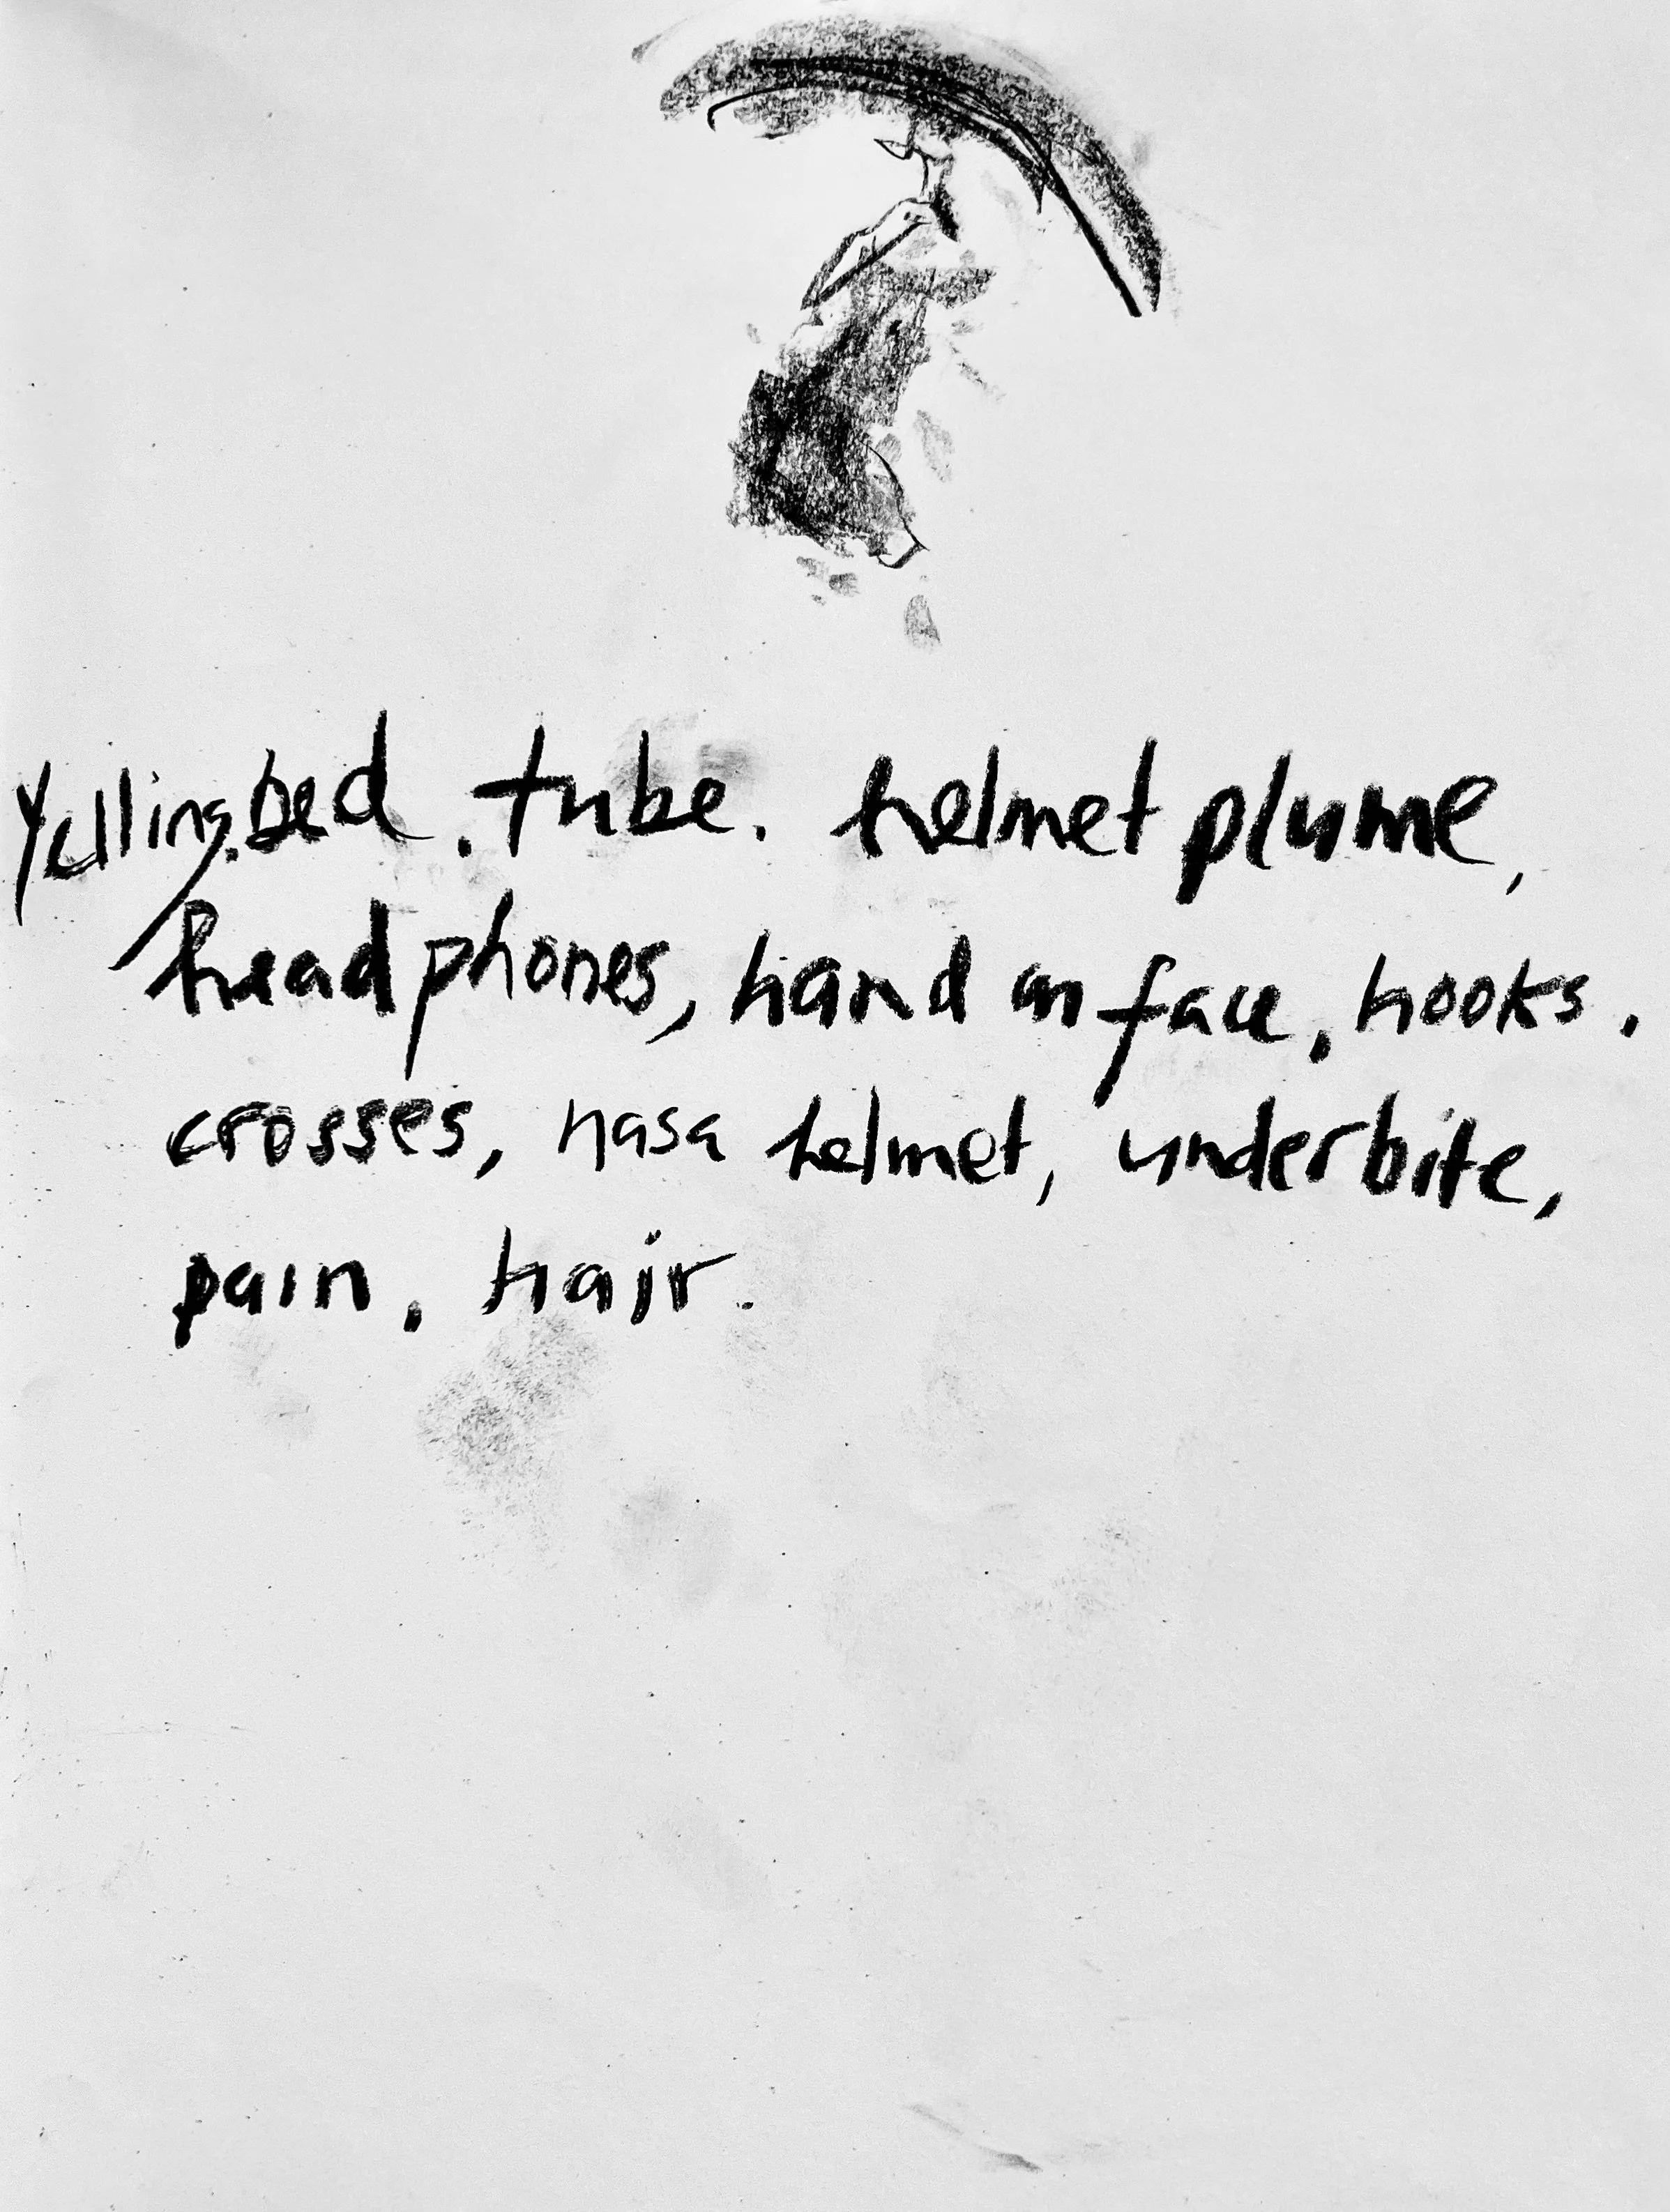 Yelling. bed. tube. helmet plume,
headphones, hand on face, hooks.
crosses, nasa helmet, underbite,
pain, hair.